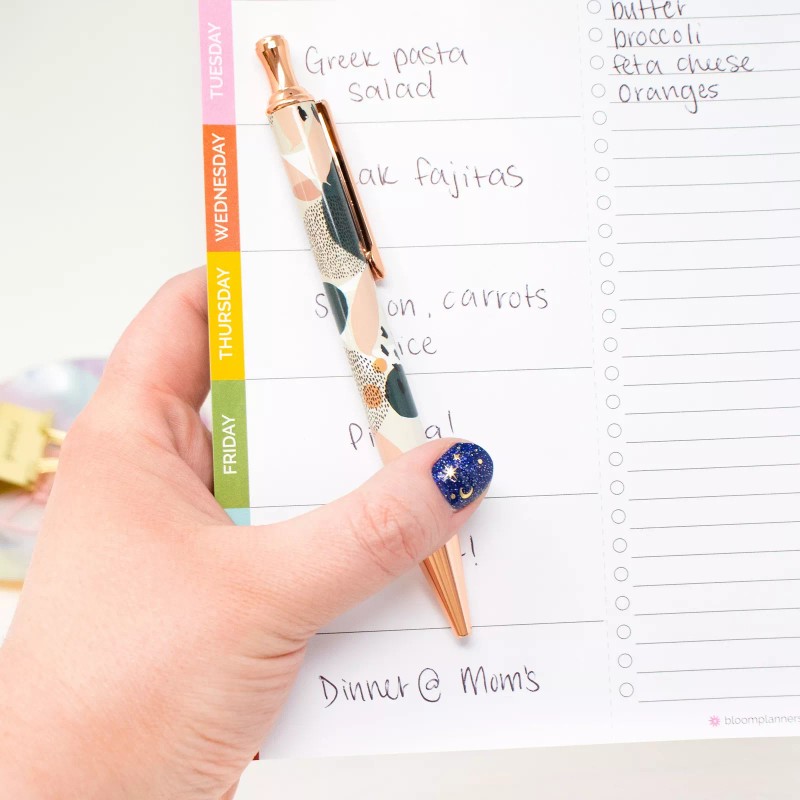 TUESDAY
Greek pasta
salad
WEDNESDAY
fajitas
THURSDAY
carrots
FRIDAY
Dinner @ Mom's
butter
broccoli
feta cheese
oranges
bloomplanners